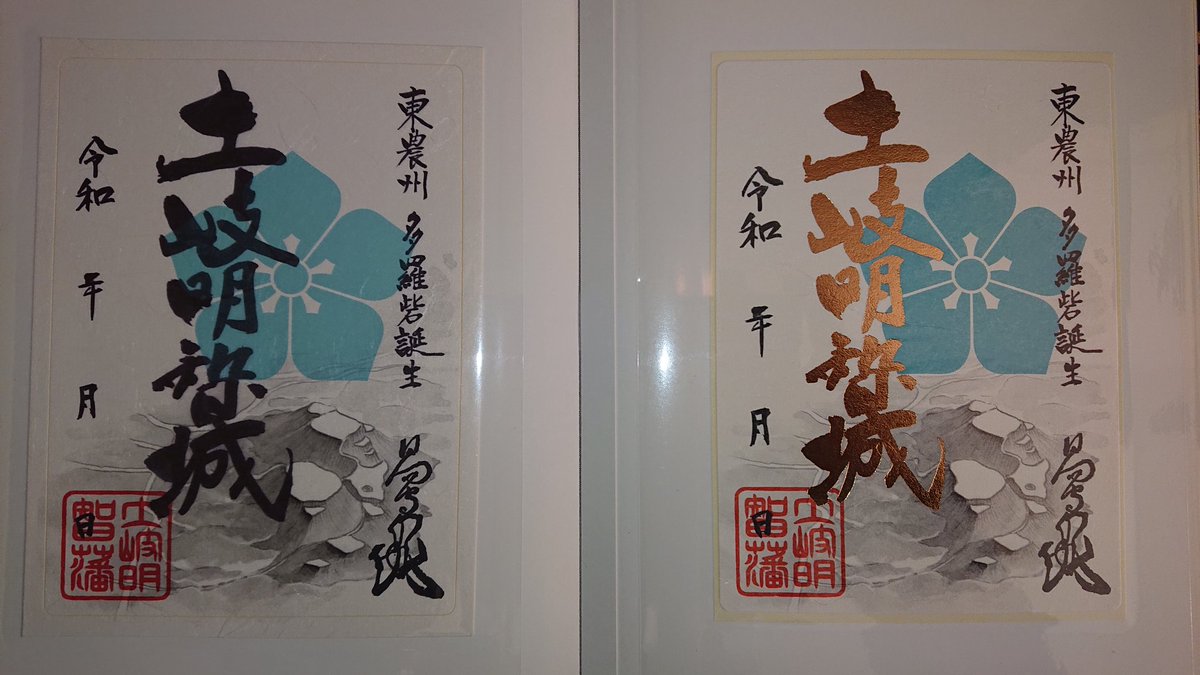 東農州 多羅砦誕生
土岐明智城
令和 年 月 日
土岐明
智藩
東農州 多羅砦誕生
土岐明智城
令和 年 月 日
土岐明
智藩